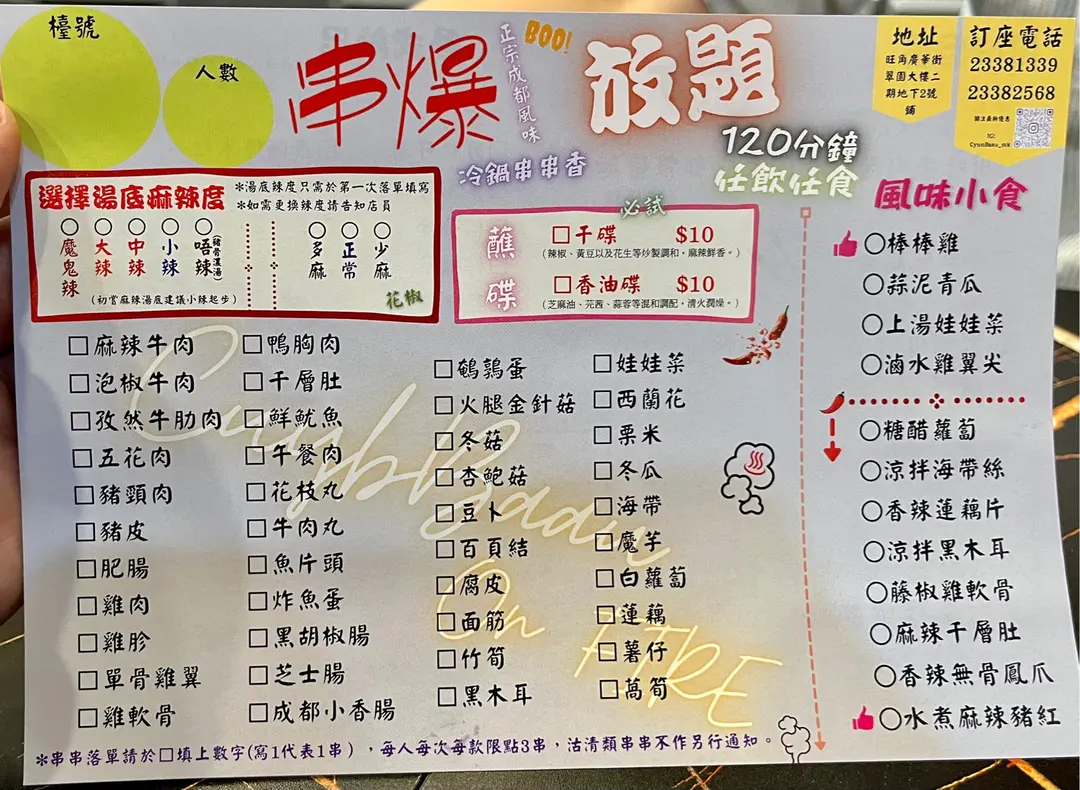 檯號
人數
串爆
正宗成都風味
BOO!
放題
冷鍋串串香
120分鐘
任飲任食
地址
旺角廣華街
翠園大樓二
期地下2號
舖
訂座電話
23381339
23382568
關注最新優惠
IG:
CyunBaau_mk
選擇湯底麻辣度
*湯底辣度只需於第一次落單填寫
*如需更換辣度請告知店員
○魔鬼辣
○大辣
○中辣
○小辣
○唔辣(豬骨濃湯)
○多麻
○正常
○少麻
(初嘗麻辣湯底建議小辣起步)
花椒
必試
蘸碟
□干碟 $10
(辣椒、黃豆以及花生等炒製調和，麻辣鮮香。)
□香油碟 $10
(芝麻油、芫茜、蒜蓉等混和調配，清火潤燥。)
□麻辣牛肉
□泡椒牛肉
□孜然牛肋肉
□五花肉
□豬頸肉
□豬皮
□肥腸
□雞肉
□雞胗
□單骨雞翼
□雞軟骨
□鴨胸肉
□千層肚
□鮮魷魚
□午餐肉
□花枝丸
□牛肉丸
□魚片頭
□炸魚蛋
□黑胡椒腸
□芝士腸
□成都小香腸
□鵪鶉蛋
□火腿金針菇
□冬菇
□杏鮑菇
□豆卜
□百頁結
□腐皮
□面筋
□竹筍
□黑木耳
□娃娃菜
□西蘭花
□粟米
□冬瓜
□海帶
□魔芋
□白蘿蔔
□蓮藕
□薯仔
□萵筍
On FIRE
風味小食
○棒棒雞
○蒜泥青瓜
○上湯娃娃菜
○滷水雞翼尖
○糖醋蘿蔔
○涼拌海帶絲
○香辣蓮藕片
○涼拌黑木耳
○藤椒雞軟骨
○麻辣千層肚
○香辣無骨鳳爪
○水煮麻辣豬紅
*串串落單請於□填上數字(寫1代表1串)，每人每次每款限點3串，沽清類串串不作另行通知。